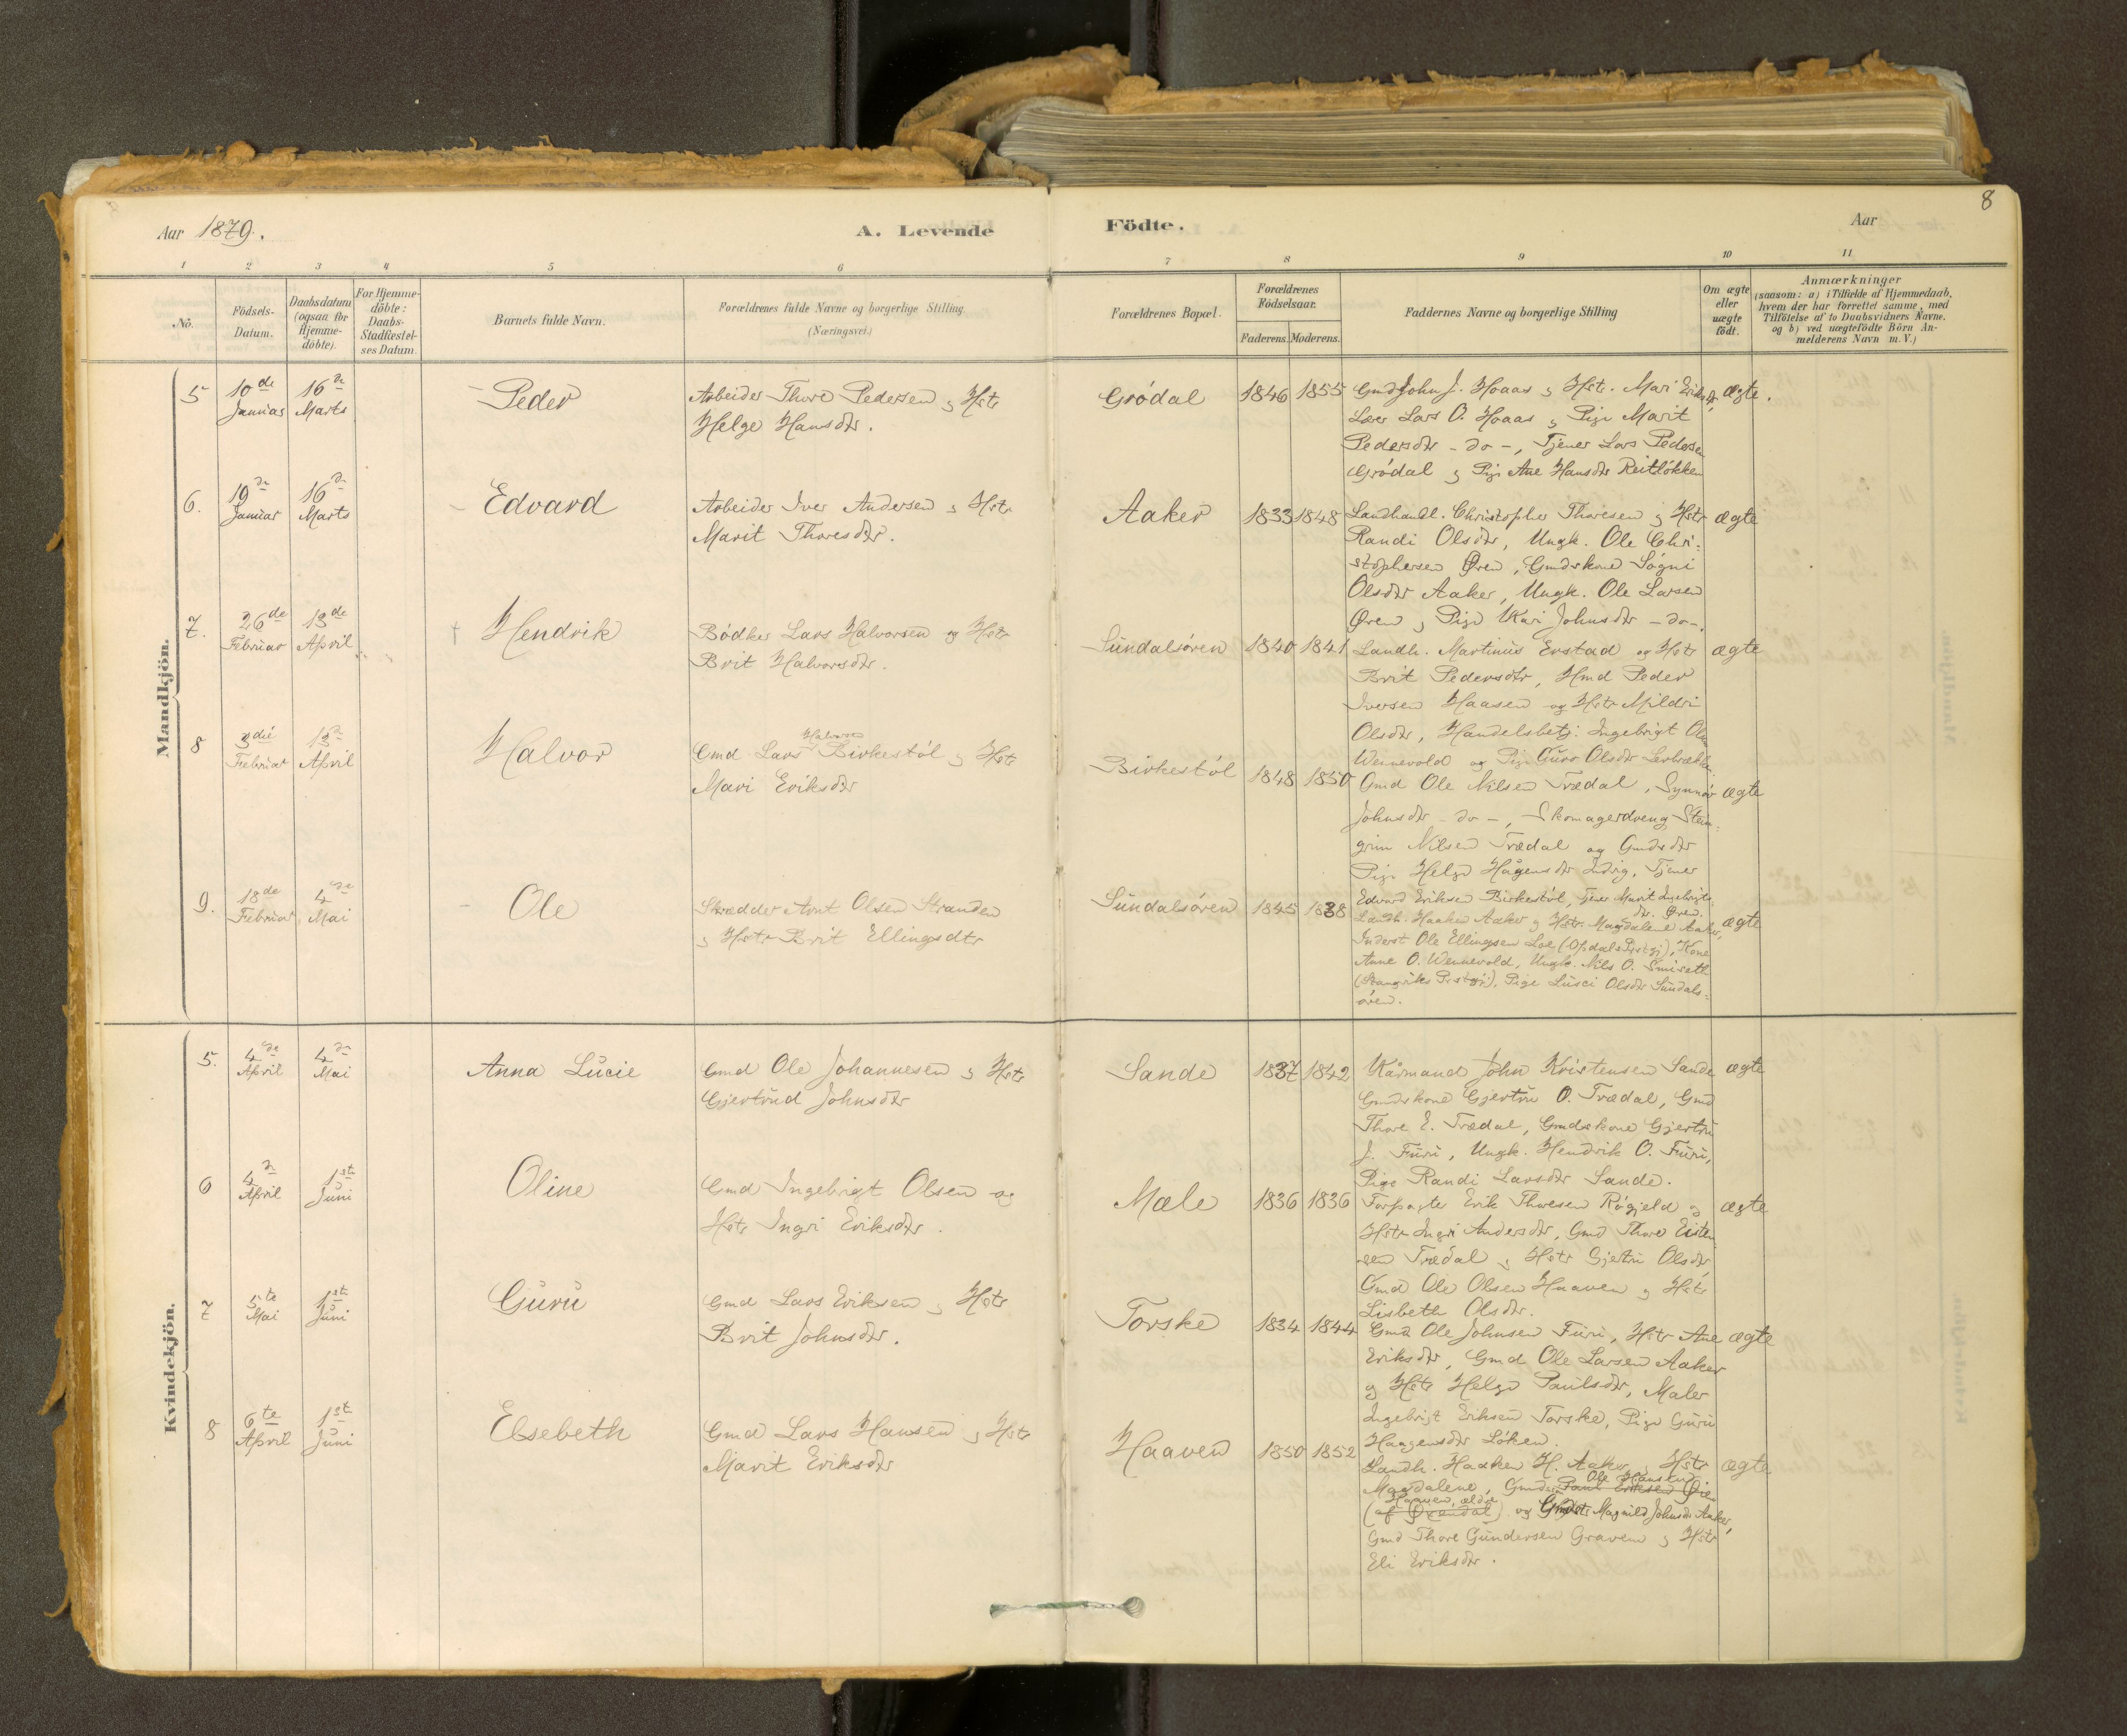 8
Aar 1879.
A. Levende
Födte.
Aar
1 2 3 4 5 6 7 8 9 10 11
No.
Födsels-
Datum.
Daabsdatum
(ogsaa for
Hjemme-
döbte).
For Hjemme-
döbte:
Daabs-
Stadfæstel-
ses Datum.
Barnets fulde Navn.
Forældrenes fulde Navne og borgerlige Stilling.
(Næringsvei.)
Forældrenes Bopæl.
Forældrenes
Födselsaar.
Faderens. Moderens.
Faddernes Navne og borgerlige Stilling
Om ægte
eller
uægte
födt.
Anmærkninger
(saasom: a) i Tilfælde af Hjemmedaab,
hvem der har forrettet samme, med
Tilföielse af to Daabsvidners Navne.
og b) ved uægtefödte Börn An-
melderens Navn m. V.)
Mandkjön.
5 10de Januar 16de Marts
Peder
Arbeider Thore Pedersen og Hstr
Helge Hansdtr.
Grödal 1846 1855
Gmd John J. Hoaas og Hstr. Mari Eriksdtr,
Lars O. Hoaas og Pige Marit
Pedersdtr - do -, Tjener Lars Pedersen
Grödal og Pige Ane Hansdtr Reitlökken
ægte.
6. 19de Januar 16de Marts
Edvard
Arbeider Iver Andersen og Hstr
Marit Thoresdtr.
Aaker 1833 1848
Landhandl. Christopher Thoresen og Hstr
Randi Olsdtr, Ungk. Ole Chri-
stophersen Øren, Gmdskone Sögni
Olsdtr Aaker, Ungk. Ole Larsen
Øren og Pige Kari Johnsdtr - do -.
ægte
7. 26de Februar 13de April
† Hendrik
Bödker Lars Halvorsen og Hstr
Brit Halvorsdtr.
Sundalsören 1840 1841
Landh. Martinus Erstad og Hstr
Brit Pedersdtr, Hmd Peder
Iversen Haasen og Hstr Mildri
Olsdtr, Handelsbetj. Ingebrigt Olsen
Wennevold og Pige Guro Olsdtr
ægte
8 3die Februar 13de April
Halvor
Halvorsen
Gmd Lars Birkestöl og Hstr
Mari Eriksdtr
Birkestöl 1848 1850
Gmd Ole Nilsen Trædal, Synnöv
Johnsdtr - do -, Skomagerdreng Stein-
grim Nilsen Trædal og Gmdsdtr
Pige Helge Hågensdtr Indvig, Tjener
Edvard Eriksen Birkestöl, Tjener Marit Ingebrigts-
dtr. Øren.
ægte
9. 18de Februar 4de Mai
Ole
Skrædder Arnt Olsen Stranden
og Hstr Brit Ellingsdtr
Sundalsören 1845 1838
Landh. Haaken Aaker og Hstr Magdalene Aaker,
Inderst Ole Ellingsen Loe (Opdals Prstgj), Kone
Anne O. Wennevold, Ungk. Nils O. Smiseth
(Stangviks Prstgj). Pige Lusci Olsdtr Sundals-
ören.
ægte
Kvindekjön.
5. 4de April 4de Mai
Anna Lucie
Gmd Ole Johannesen og Hstr
Gjertrud Johnsdtr
Sande 1837 1842
Kårmand John Kristensen Sande
Gmdskone Gjertru O. Trædal, Gmd
Thore E. Trædal, Gmdskone Gjertru
J. Furu, Ungk. Hendrik O. Furu,
Pige Randi Larsdtr Sande.
ægte
6 4de April 1ste Juni
Oline
Gmd Ingebrigt Olsen og
Hstr Ingri Eriksdtr.
Mæle 1836 1836
Forpagter Erik Thoresen Rögjeld og
Hstr Ingri Andersdtr, Gmd Thore Eisten-
sen Trædal og Hstr Gjertru Olsdtr
Gmd Ole Olsen Haaven og Hstr
Lisbeth Olsdtr.
ægte
7 5te Mai 1ste Juni
Guru
Gmd Lars Eriksen og Hstr
Brit Johnsdtr.
Torske 1834 1844
Gmd Ole Johnsen Furu, Hstr Ane
Eriksdtr, Gmd Ole Larsen Aaker
og Hstr Helge Paulsdtr, Maler
Ingebrigt Eriksen Torske, Pige Guru
Haagensdtr Löken.
ægte
8 6te April 1ste Juni
Elsebeth
Gmd Lars Hansen og Hstr
Marit Eriksdtr
Haaven 1850 1852
Landh. Haaken H. Aaker, Hstr
Ole Hansen
Magdalene, Gmd Paul Eriksen Øien
Haaven, ældre
(af Øxendal) og Hstr Magnild Johnsdtr Aaker,
Gmd Thore Gundersen Graven og Hstr
Eli Eriksdtr.
ægte